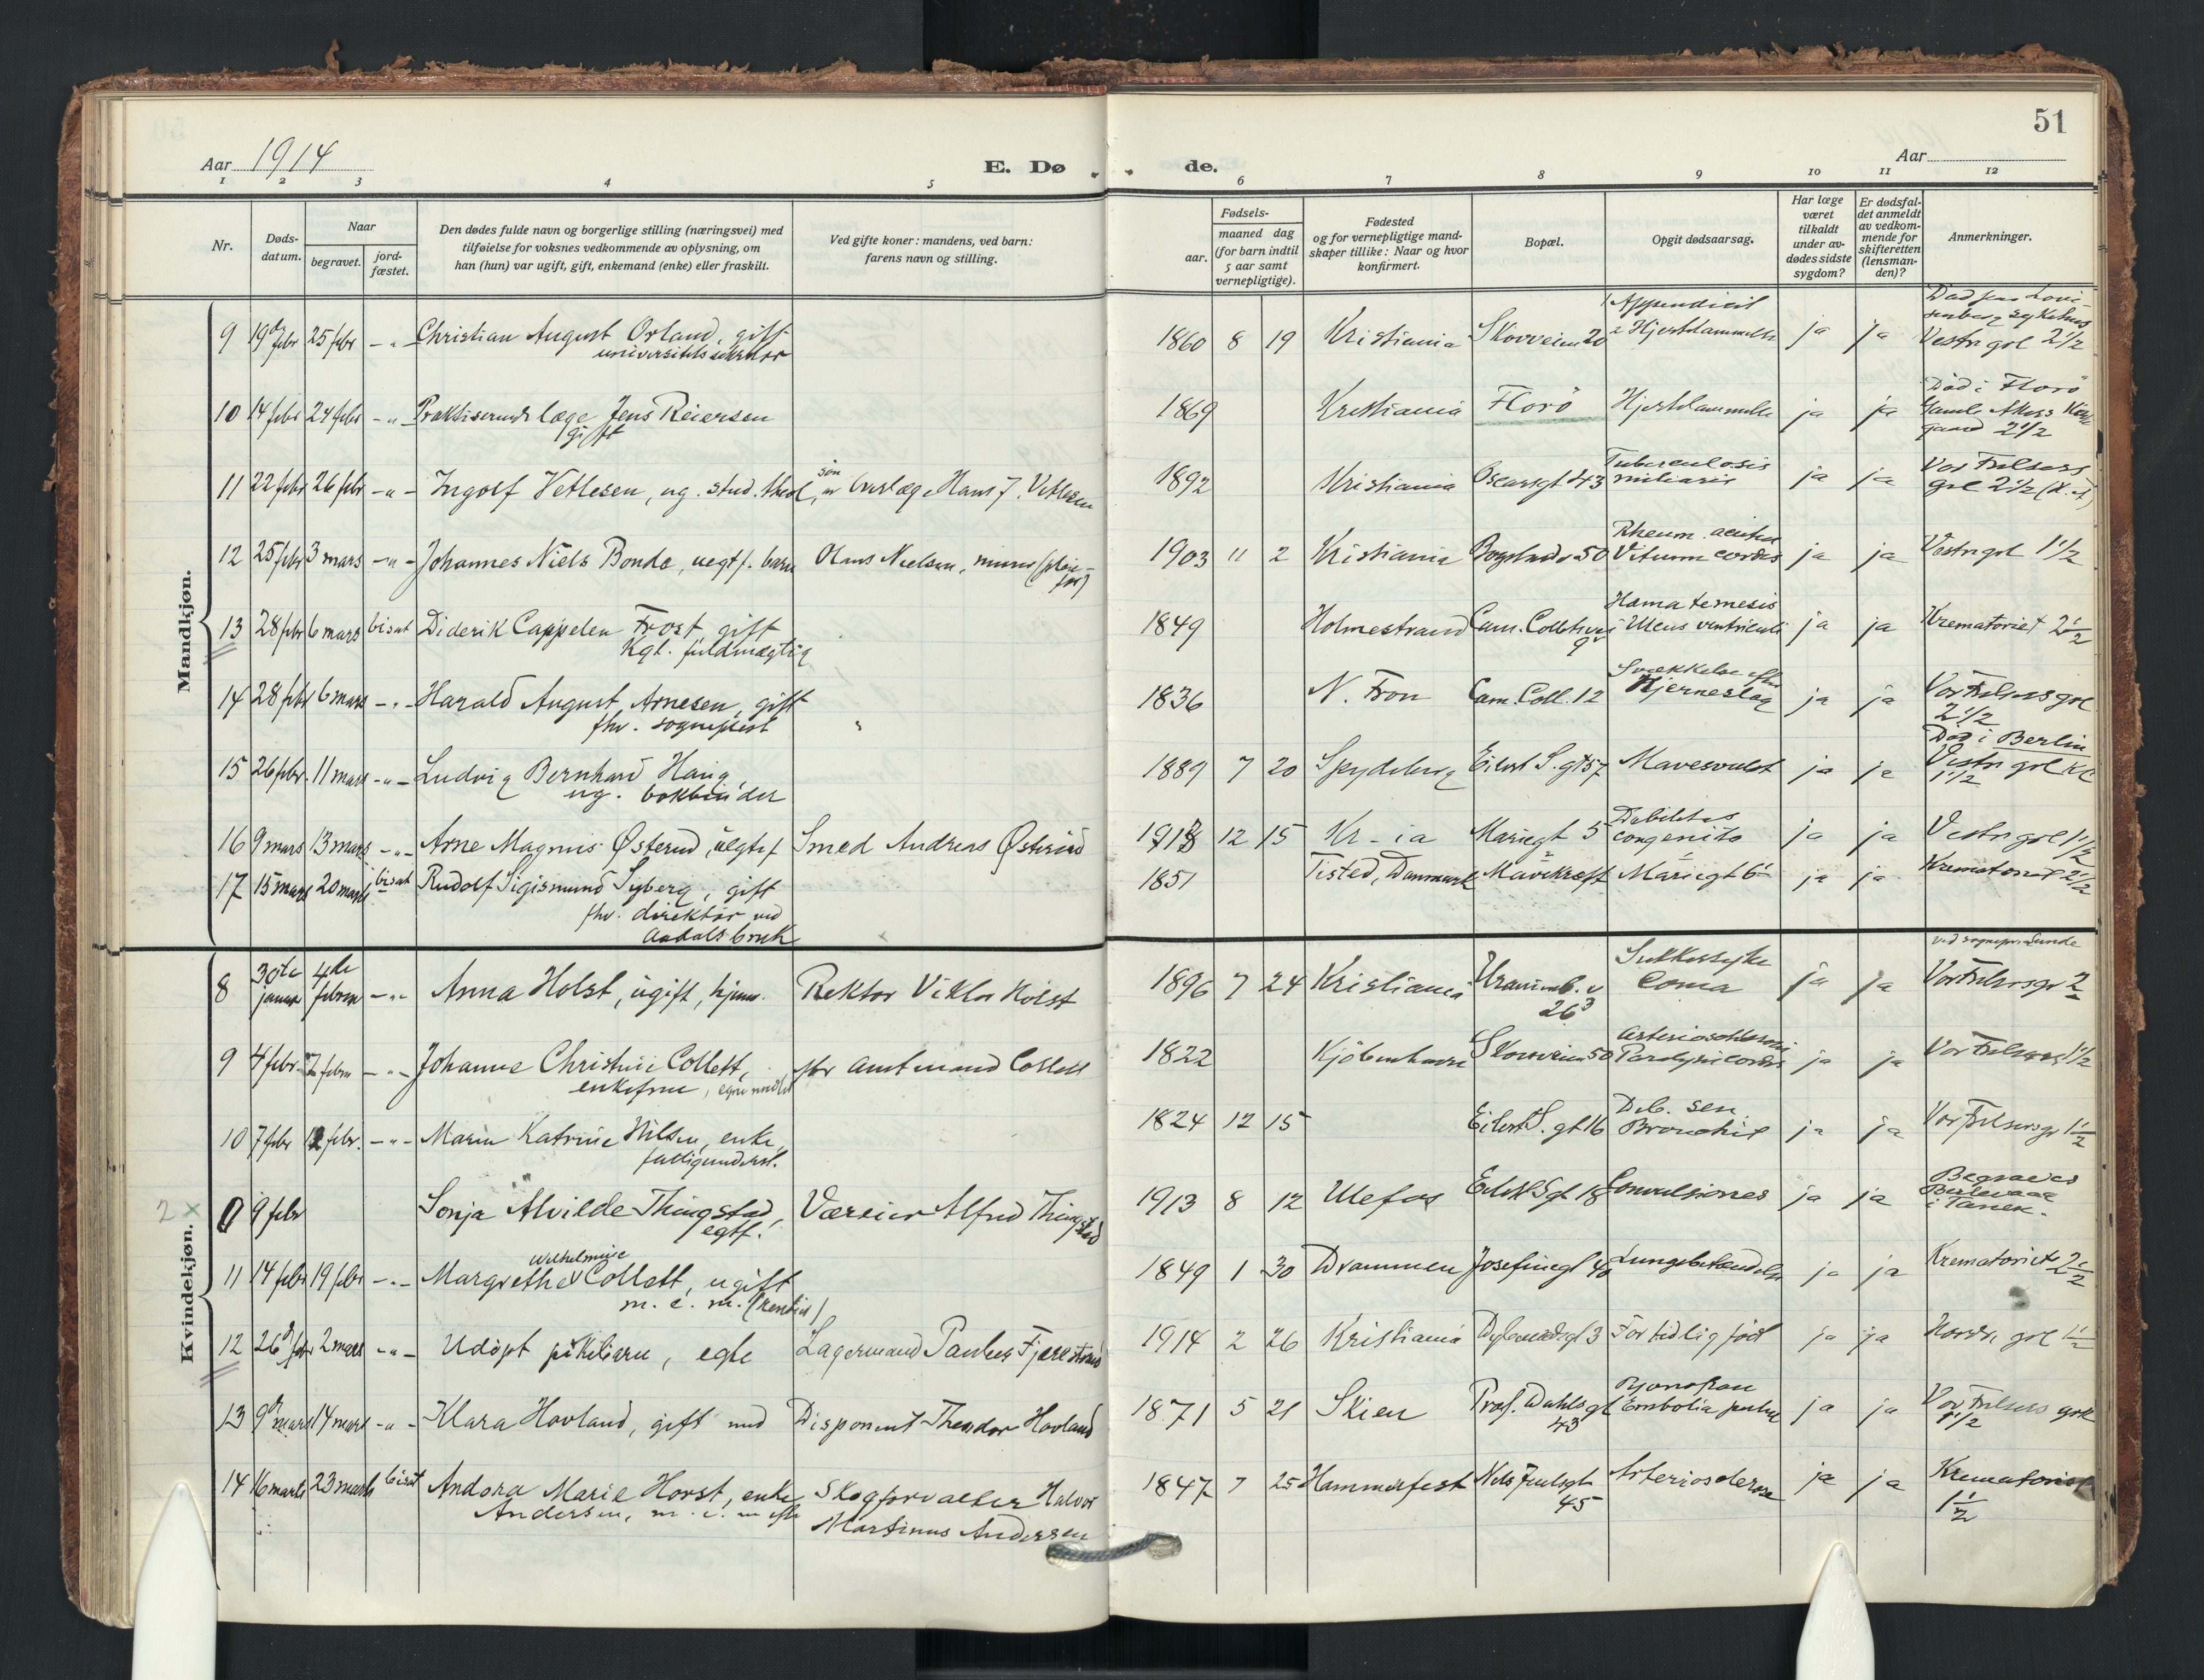 51
Aar 1914
E. Dø
de.
Aar
1 2 3 4 5 6 7 8 9 10 11 12
Nr.
Døds-
datum.
Naar
begravet.
jord-
fæstet.
Den dødes fulde navn og borgerlige stilling (næringsvei) med
tilføielse for voksnes vedkommende av oplysning, om
han (hun) var ugift, gift, enkemand (enke) eller fraskilt.
Ved gifte koner: mandens, ved barn:
farens navn og stilling.
Fødsels-
aar.
maaned dag
(for barn indtil
5 aar samt
vernepligtige).
Fødested
og for vernepligtige mand-
skaper tillike: Naar og hvor
konfirmert.
Bopæl.
Opgit dødsaarsag.
Har læge
været
tilkaldt
under av-
dødes sidste
sygdom?
Er dødsfal-
det anmeldt
av vedkom-
mende for
skifteretten
(lensman-
den)?
Anmerkninger.
Mandkjøn.
9 19 febr 25 febr - " - Christian August Orland, gift
universitetssekretær
1860 8 19 Kristiania Skovveien 20 1 Appendicit
2 Hjertelammelse ja ja Død paa Lovi-
senberg sykehus
Vestre grl 2 1/2
10 14 febr 24 febr - " - Praktiserende læge Jens Reiersen
gift
1869 Kristiania Florö Hjertelammelse ja ja Död i Florö
Gamle Akers Kirke
gaard 2 1/2
11 22 febr 26 febr - " - Ingolf Vetlesen, ug. stud. theol, søn av overlæge Hans J. Vetlesen
1892 Kristiania Oscarsgt 43 Tuberculosis
miliaris ja ja Vor Frelsers
grl 2 1/2
12 25 febr 3 mars - " - Johannes Niels Bonde, uegtf. barn Olaus Nielsen, murer
1903 11 2 Kristiania 50 Rheum. acuta
Vitium cordis ja ja Vestre grl 1 1/2
13 28 febr 6 mars bisat Diderik Cappelen Frost gift
Kgl. fuldmægtig
1849 Holmestrand Cam. Collettsvei
9 Hæmatemesis
Ulcus ventriculi ja ja Krematoriet 2 1/2
14 28 febr 6 mars - " - Harald August Arnesen, gift
fhv. sogneprest
1836 N. Fron Cam. Coll. 12 Svækkelse efter
Hjerneslag ja ja Vor Frelsers grl
2 1/2
15 26 febr. 11 mars - " - Ludvig Bernhard Haug,
ug. bokbinder
1889 7 20 Spydeberg Eilert S. gt 57 Mavesvulst ja ja Død i Berlin
Vestre grl Kl
1 1/2
16 9 mars 13 mars - " - Arne Magnus Østerud, uegtef Smed Andreas Østerud
1913 12 15 Kr-ia Mariegt 5 Debilitas
congenita ja ja Vestre grl 1 1/2
17 15 mars 20 mars bisat Rudolf Sigismund Syberg, gift
fhv. direktør ved
Aadals bruk
1851 Tisted, Danmark Mavekræft Mariegt 6 ja ja Krematoriet 2 1/2
Kvindekjøn.
8 30te januar 4de februar - " - Anna Holst, ugift, hjem. Rektor Viktor Holst
1896 7 24 Kristiania Uranienb. v
26 3 Sukkersyke
Coma ja ja ved sognepr. Sunde
Vor Frelsers gr 2
9 4 febr. 7 febr - " - Johanne Christine Collett,
enkefrue, egne midler fhv amtmand Collett
1822 Kjöbenhavn Skovveien 50 Arteriosclerosis
Paralysis cordis ja ja Vor Frelsers 1 1/2
10 7 febr 12 febr. - " - Maren Katrine Nilsen, enke,
fattigunderst.
1824 12 15 Eilert S. gt 16 Deb. sen.
Bronchit ja ja Vor Frelsers gr 1 1/2
2 x 0 9 febr Sonja Alvilde Thingstad,
egtf. Væreier Alfred Thingstad
1913 8 12 Ulefos Eilert S gt 18 Convulsiones ja ja Begraves
Berlevaag
i Tanen.
11 14 febr 19 febr - " - Margrethe Wilhelmine Collett, ugift
m. e. m. (rentier)
1849 1 30 Drammen Josefinegt 40 Lungebetændelse ja ja Krematoriet 2 1/2
12 26 febr 2 mars - " - Udøpt pikebarn, egte Lagermand Paulus Fjærestrand
1914 2 26 Kristiania 3 For tidlig født ja ja Nordre grl 1 1/2
13 9 mars 14 mars - " - Klara Hovland, gift med Disponent Theodor Hovland
1871 5 21 Skien Prof. Dahls gt
43 Embolia pulm ja ja Vor Frelsers grl
1 1/2
14 16 mars 23 mars bisat Andora Marie Horst, enke
Andersen, m. e. m efter Skogforvalter Halvor
Martinus Andersen
1847 7 25 Hammerfest Nils Juelsgt
45 Arteriosclerose ja ja Krematoriet
1 1/2